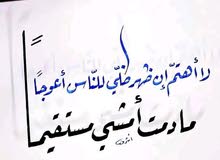 لا أهتمّ إن ظهر ظلّي للنّاس أعوجاً
ما دمت أمشي مستقيماً